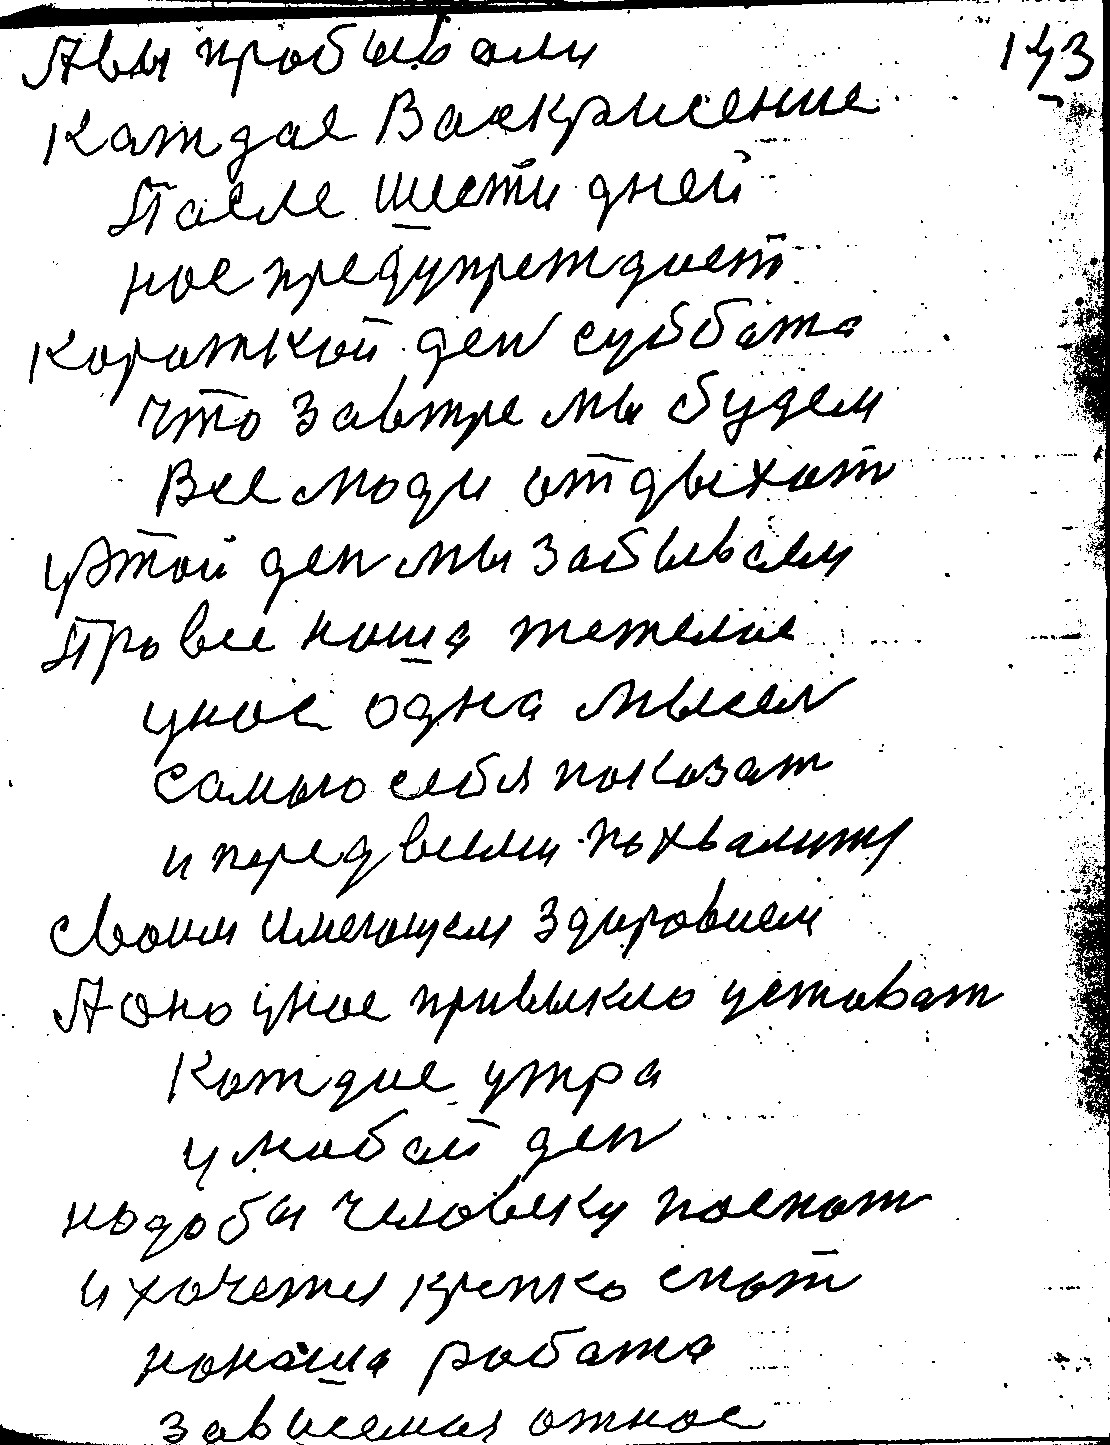 Авы пробывали
143
Каждае Васкрисение
После шести дней
нас предупреждает
Кароткой ден суббата
что завтре мы будем
Все люди отдыхат
уэтой ден мы забываем
Про все наша тежелае
унас одна мысел
самого себя показат
и перед всеми похвалится
Своим имеющем здаровием
А оно унас привыкло устават
Каждае утра
у любой ден
надобы человеку поспат
и хочется крепко спат
нонаша работа
зависемая отнас